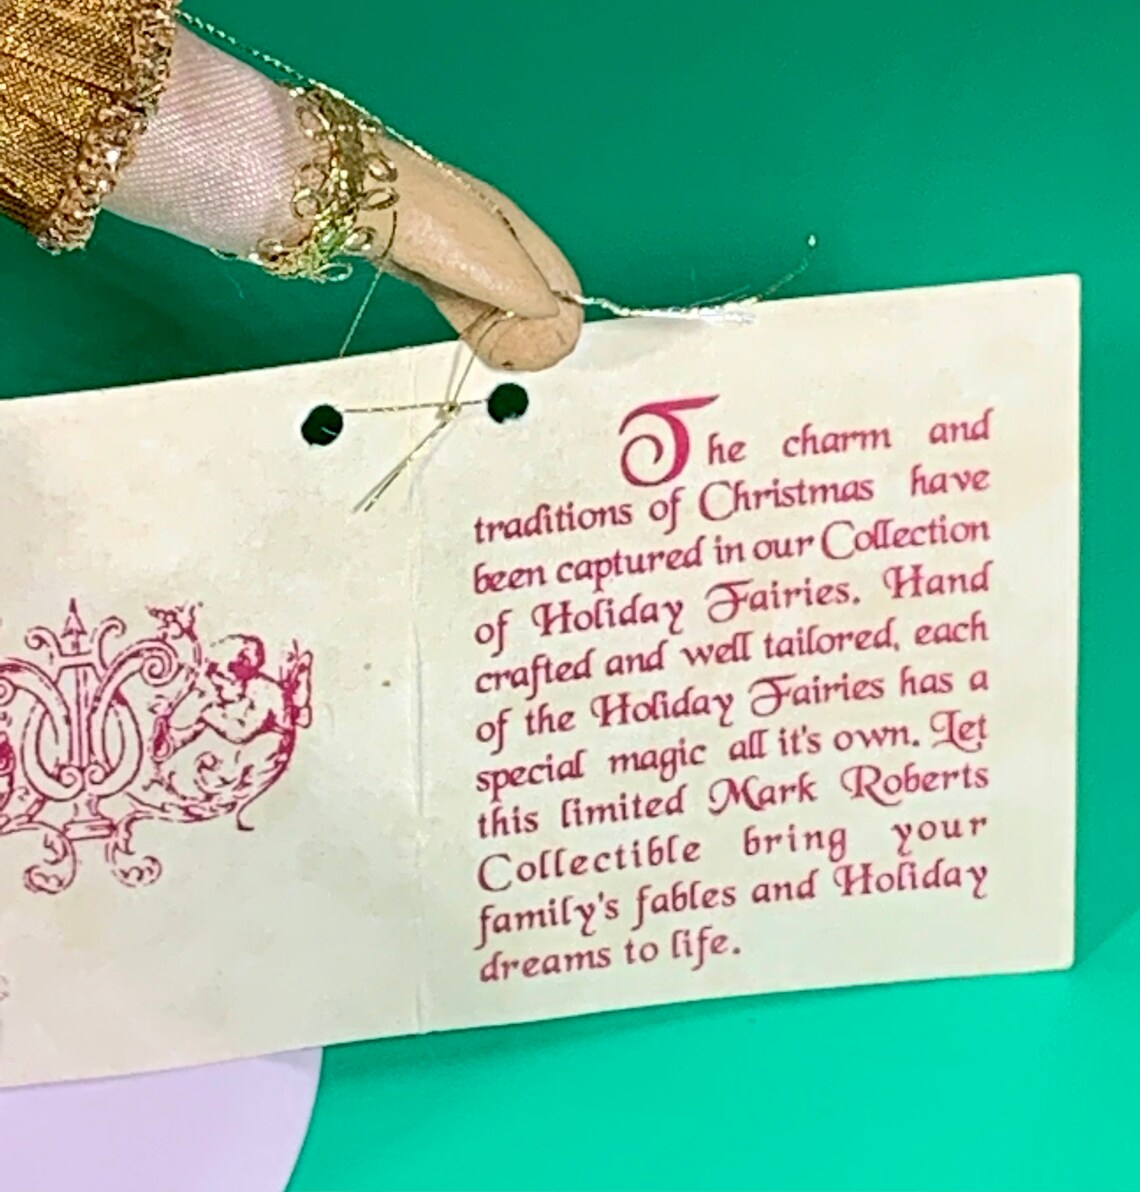 The charm and
traditions of Christmas have
been captured in our Collection
of Holiday Fairies. Hand
crafted and well tailored, each
of the Holiday Fairies has a
special magic all it's own. Let
this limited Mark Roberts
Collectible bring your
family's fables and Holiday
dreams to life.